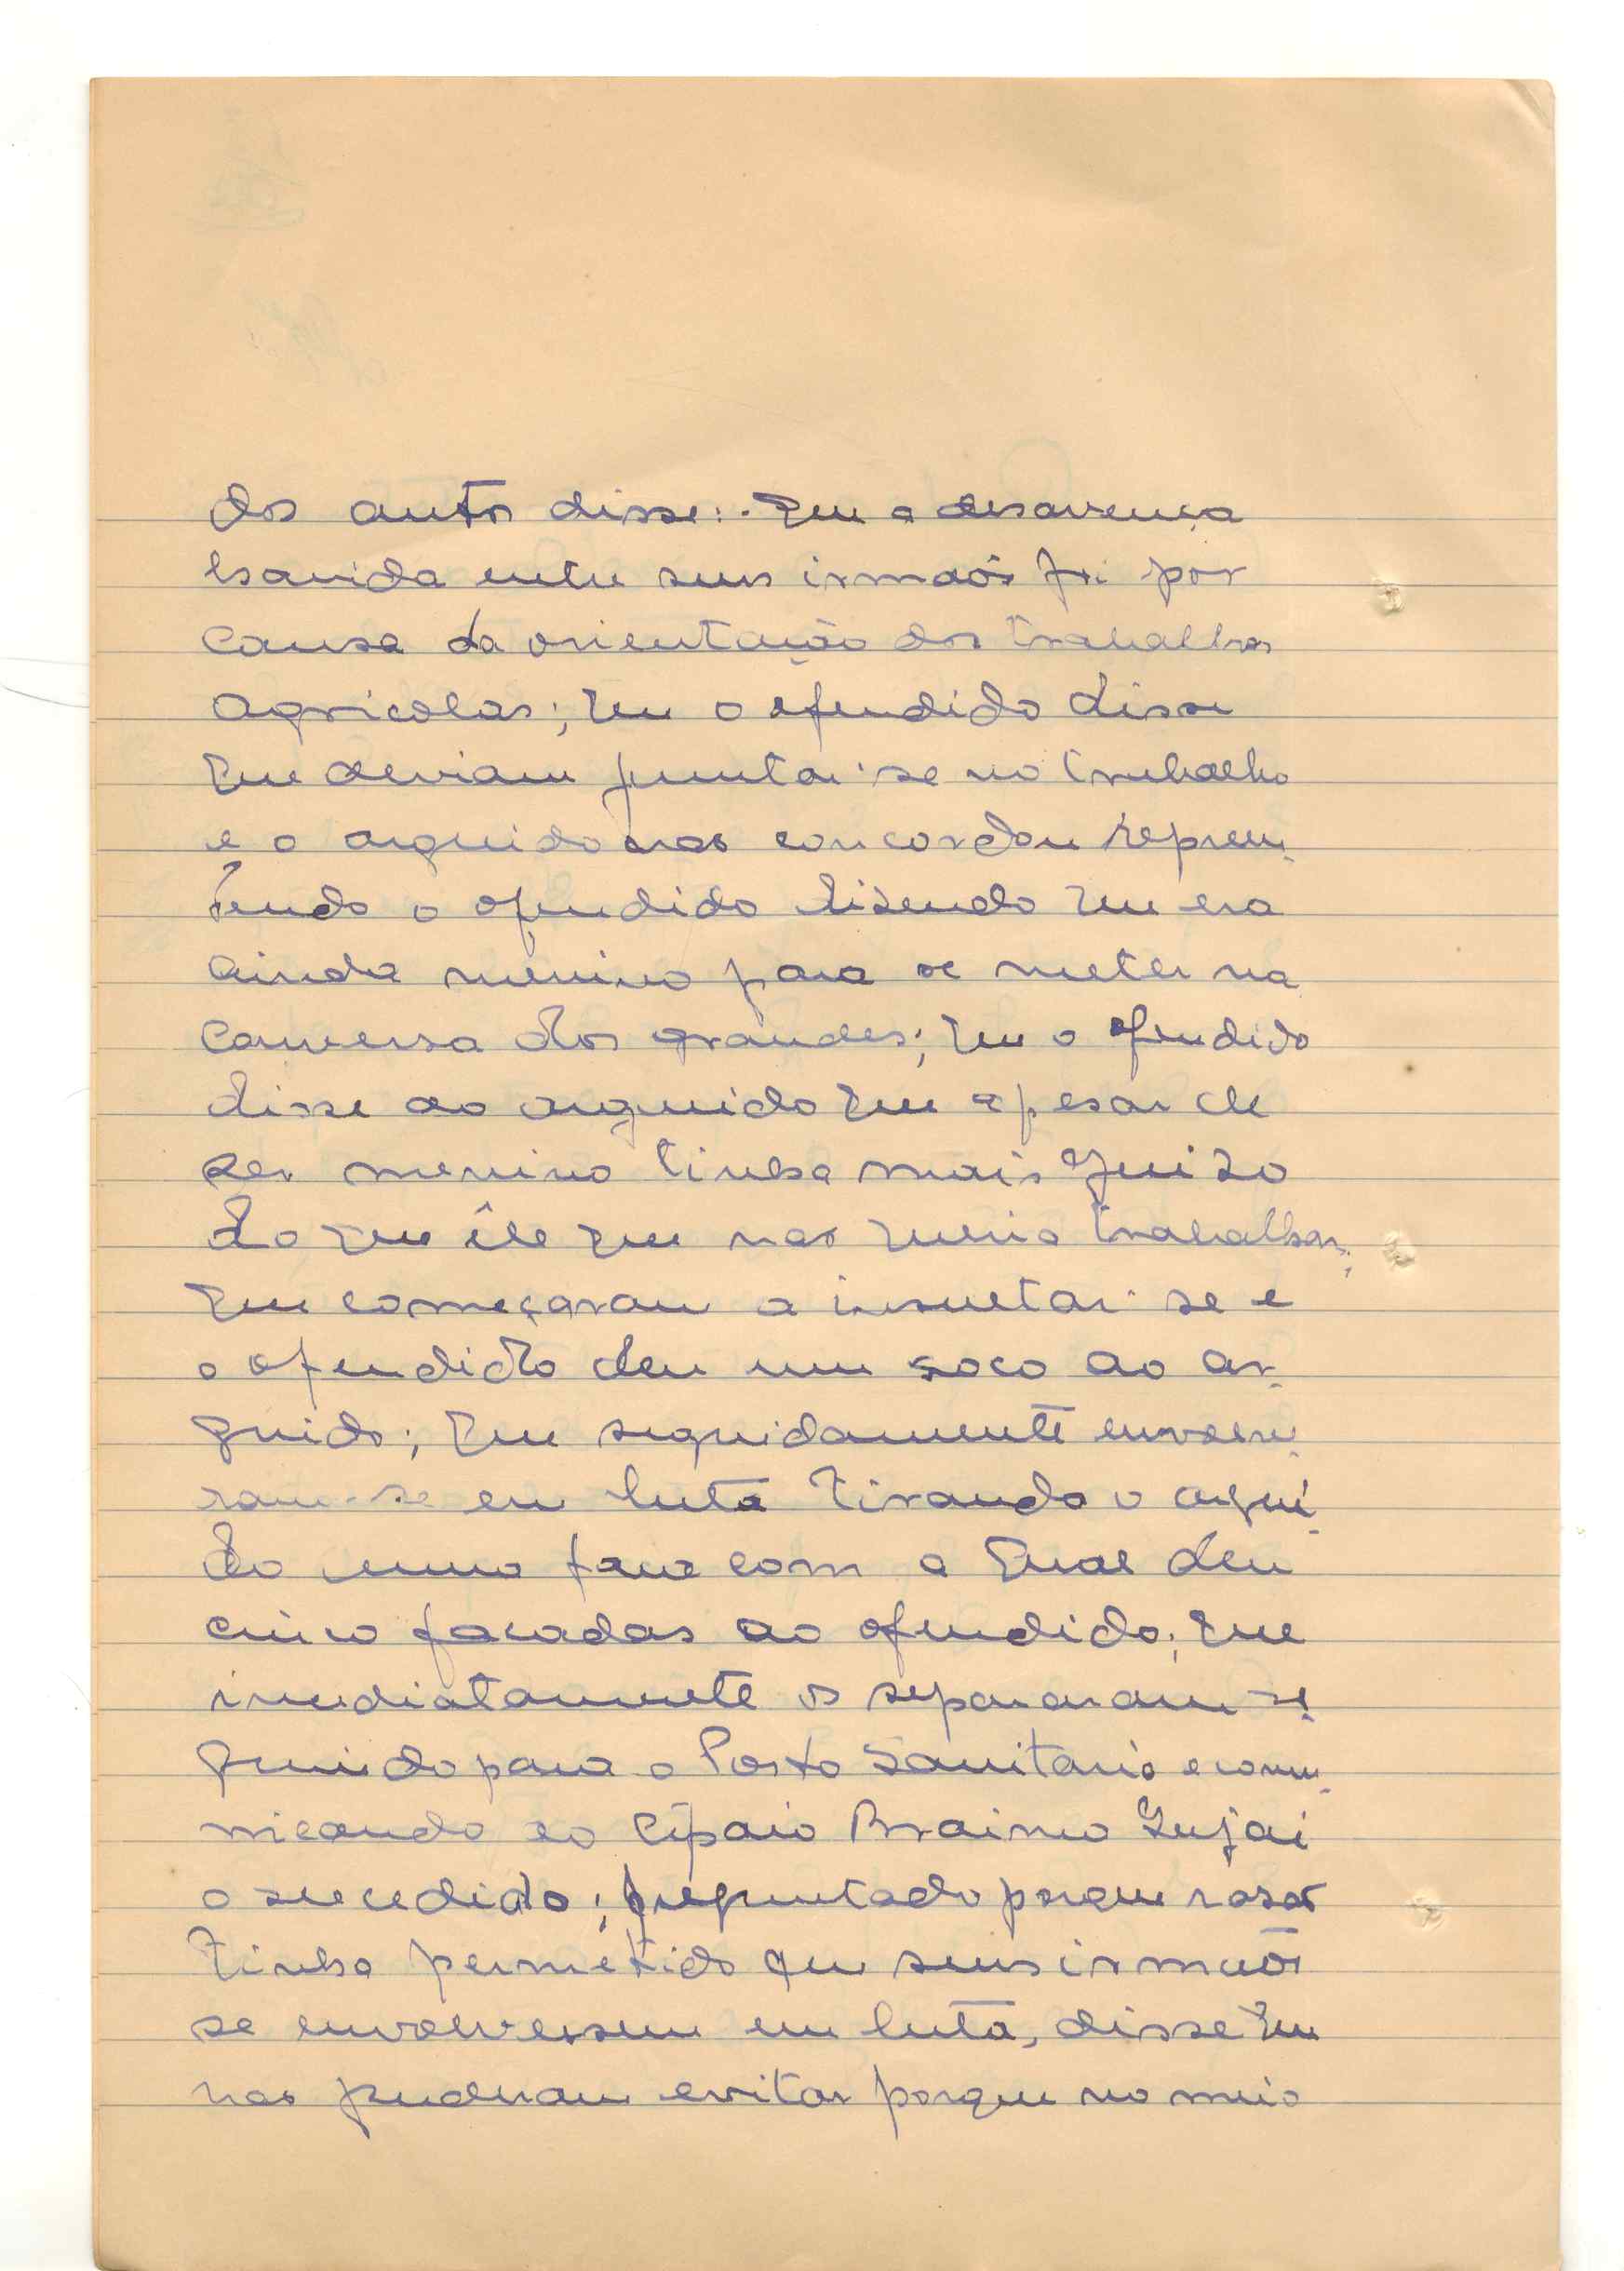 dos autos disse:- Que a desavença
havida entre seus irmãos foi por
causa da orientação dos trabalhos
agricolas; que o ofendido disse
que deviam juntar-se no trabalho
e o arguido não concordou repreen-
dendo o ofendido disendo que era
ainda menino para se meter na
conversa dos grandes; que o ofendido
disse ao arguido que apesar de
ser menino tinha mais juizo
do que êle que não queria trabalhar;
que começaram a insultar-se e
o ofendido deu um soco ao ar-
guido; que seguidamente envolve-
ram-se em luta tirando o argui-
do uma faca com a qual deu
cinco facadas ao ofendido; que
imediatamente os separaram se-
guindo para o Posto Sanitario e comu-
nicando ao Cipaio Braimo
o sucedido; preguntado porque rasão
tinha permetido que seus irmãos
se envolvessem em luta, disse que
não puderam evitar porque no meio